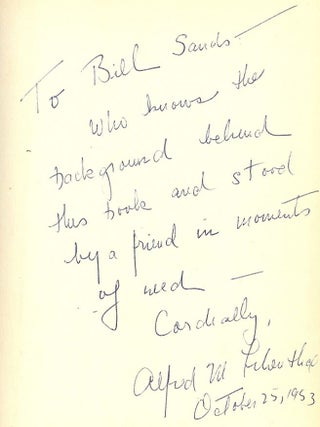 To Bill Sands —
Who knows the
background behind
this book and stood
by a friend in moments
of need —
Cordially,
Alfred M Lilienthal
October 25, 1953